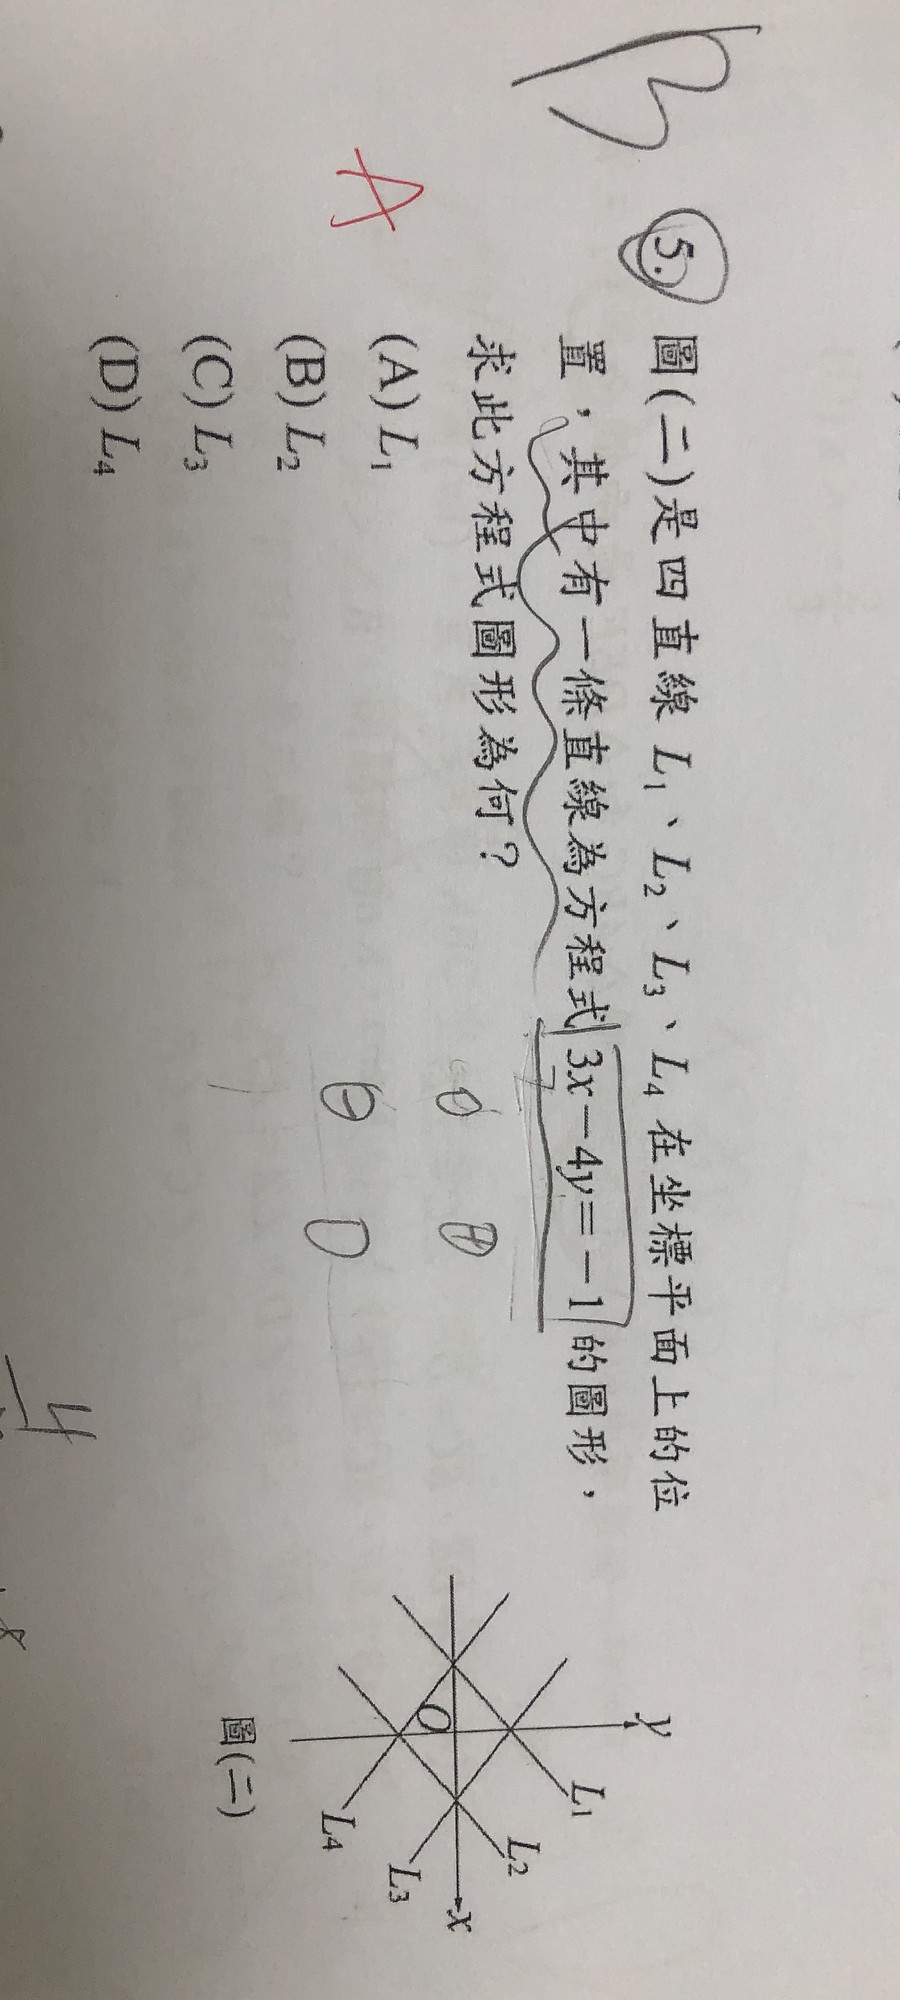 B
5. 圖(二)是四直線 L₁、L₂、L₃、L₄ 在坐標平面上的位
置，其中有一條直線為方程式 3x－4y＝－1 的圖形，
求此方程式圖形為何？
A
(A) L₁
(B) L₂
(C) L₃
(D) L₄
y
L₁
L₂
x
L₃
L₄
O
圖(二)